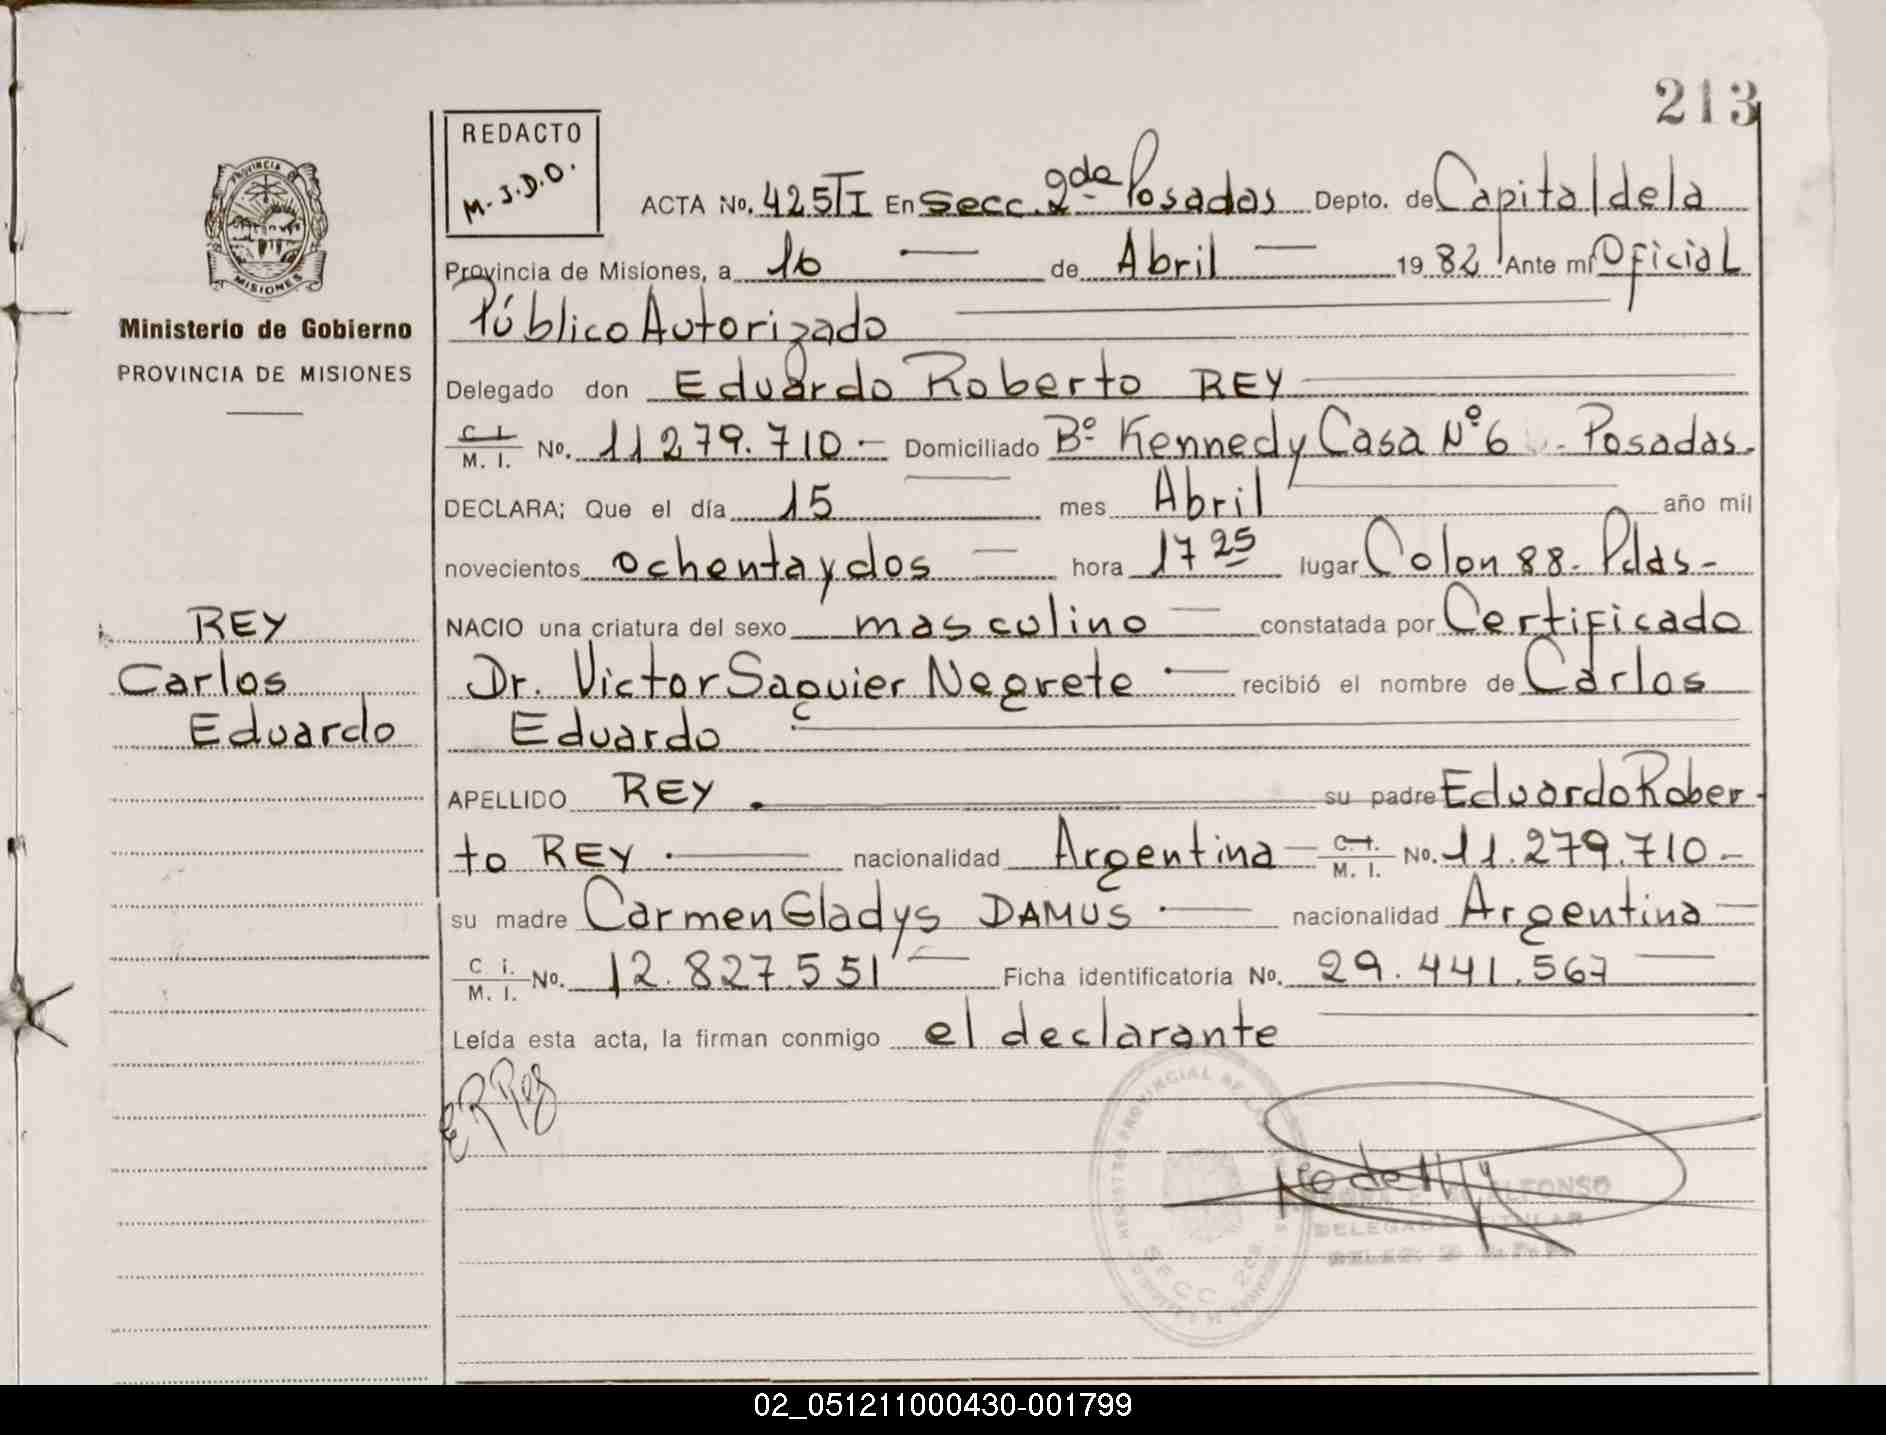 213
REDACTO
M.J.D.O.
PROVINCIA
MISIONES
Ministerio de Gobierno
PROVINCIA DE MISIONES
ACTA No. 425 TI En Secc. 2da Posadas Depto. de Capital de la
Provincia de Misiones, a 16 — de Abril — 19 82 Ante mí Oficial
Público Autorizado
Delegado don Eduardo Roberto REY
C. I. M. I. No. 11279.710 — Domiciliado Bº Kennedy Casa Nº 6 - Posadas.
DECLARA; Que el día 15 mes Abril año mil
novecientos ochenta y dos — hora 17 25 lugar Colon 88. Pdas-
NACIO una criatura del sexo masculino — constatada por Certificado
Dr. Victor Saguier Negrete — recibió el nombre de Carlos
Eduardo
REY
Carlos
Eduardo
APELLIDO REY . su padre Eduardo Rober-
to REY . — nacionalidad Argentina — C. I. M. I. No. 11.279.710 -
su madre Carmen Gladys DAMUS . — nacionalidad Argentina —
C. I. M. I. No. 12.827.551 — Ficha identificatoria No. 29.441.567 —
Leída esta acta, la firman conmigo el declarante
E R Rey
REGISTRO PROVINCIAL DE LAS
SECC 2da
ALFONSO
DELEGADO TITULAR
02_051211000430-001799